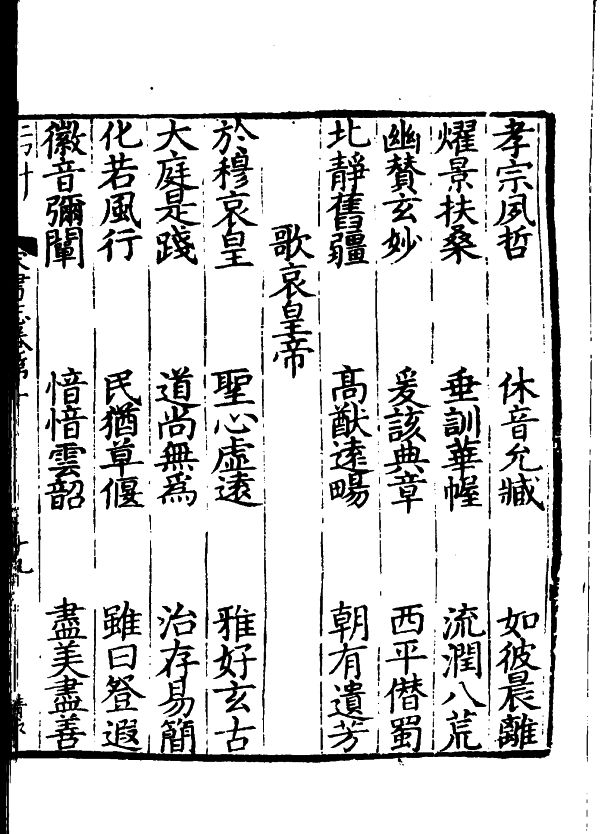 孝宗夙哲　休音允臧　如彼晨離
燿景扶桑　垂訓華幄　流潤八荒
幽贊玄妙　爰該典章　西平僭蜀
北靜舊疆　高猷遠暢　朝有遺芳
歌哀皇帝
於穆哀皇　聖心虛遠　雅好玄古
大庭是踐　道尚無爲　治存易簡
化若風行　民猶草偃　雖曰登遐
徽音彌闡　愔愔雲韶　盡美盡善